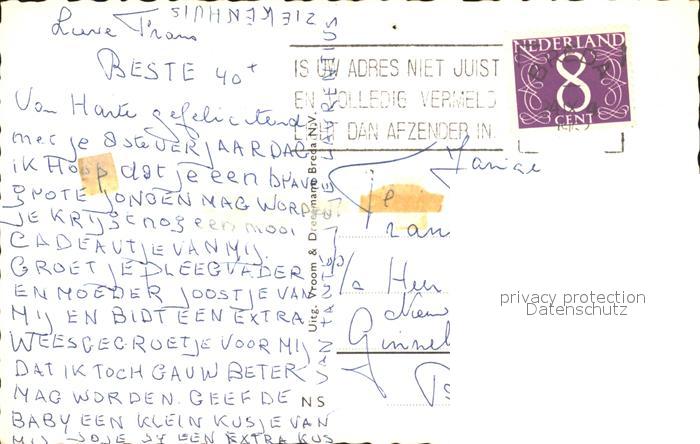 ZIEKENHUIS
Lieve Frans
BESTE 40+
Van Harte gefeliciteerd
met je 8ste VERJAARDAG
iK Hoop dat je een BRAVE
GROTE JONGEN MAG WORDEN.
JE KRIJGT nog een mooi
CADEAUTJE VAN MIJ.
GROET JE PLEEGVADER
EN MOEDER JOOSTJE VAN
MIJ EN BIDT EEN EXTRA
WEESGEGROETJE VOOR MIJ
DAT IK TOCH GAUW BETER
MAG WORDEN. GEEF DE
BABY EEN KLEIN KUSJE VAN
MIJ EN EXTRA KUS
LAURENTIUS
Uitg. Vroom & Dreesmann Breda N.V.
NS
IS UW ADRES NIET JUIST
EN VOLLEDIG VERMELD
DAN AFZENDER IN
NEDERLAND
8
CENT
Fran
p/a Heer
Nieuw
Ginnek
privacy protection
Datenschutz